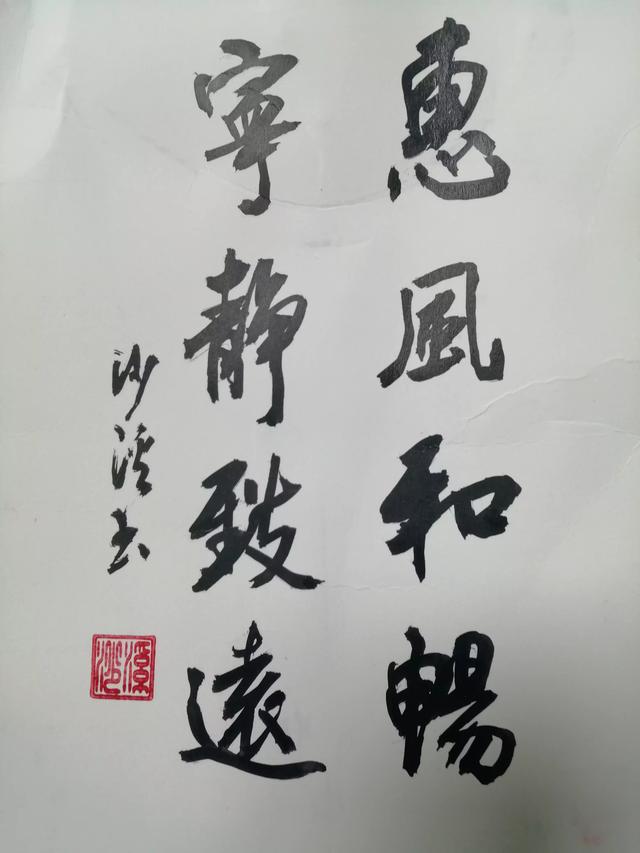 惠風和暢
寧靜致遠
沙溪书